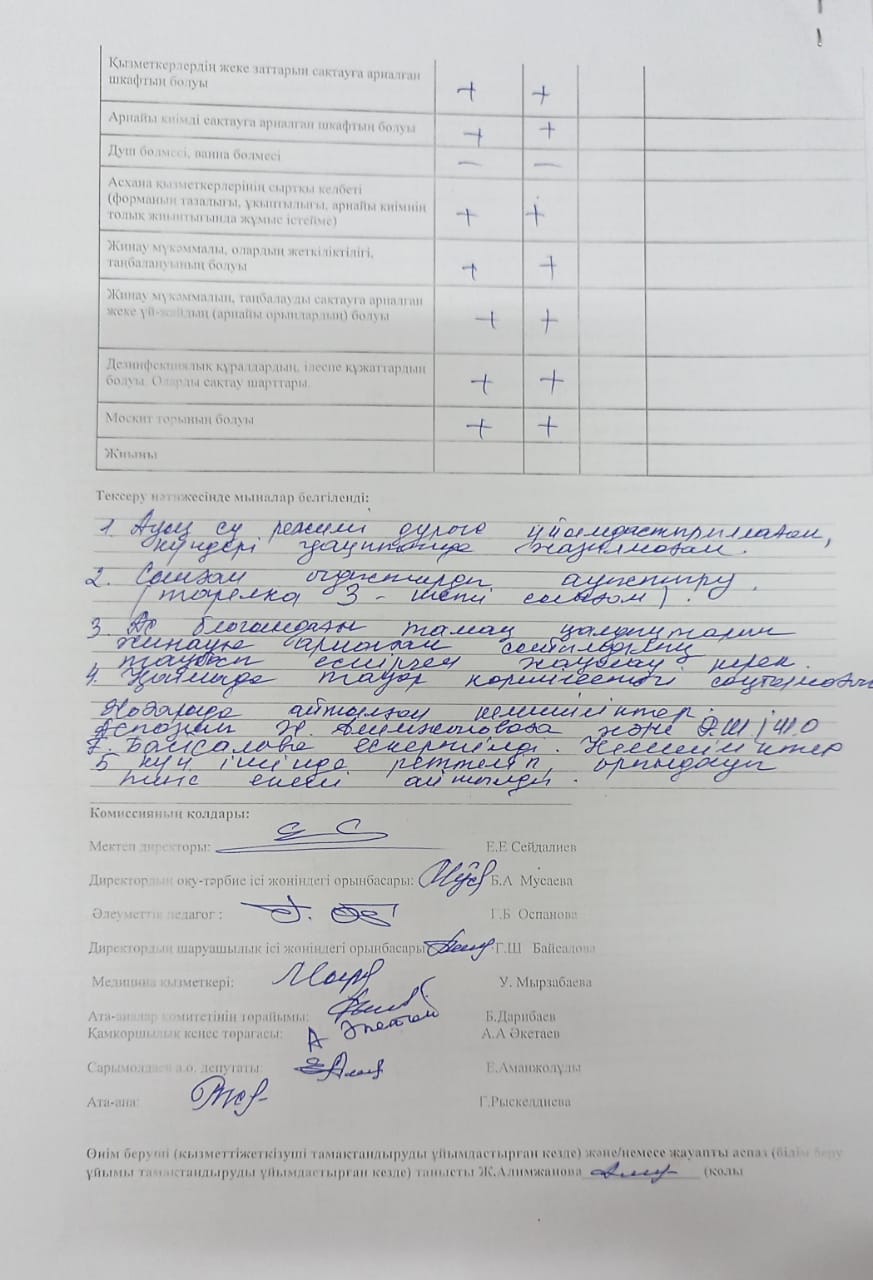 Қызметкерлердің жеке заттарын сақтауға арналған
шкафтың болуы + +
Арнайы киімді сақтауға арналған шкафтың болуы + +
Душ бөлмесі, ванна бөлмесі — —
Асхана қызметкерлерінің сыртқы келбеті
(форманың тазалығы, ұқыптылығы, арнайы киімнің
толық жиынтығында жұмыс істейме) + +
Жинау мүкәммалы, олардың жеткіліктілігі,
таңбалануының болуы + +
Жинау мүкәммалын, таңбалауды сақтауға арналған
жеке үй-жайдың (арнайы орындардың) болуы + +
Дезинфекциялық құралдардың, ілеспе құжаттардың
болуы. Оларды сақтау шарттары. + +
Москит торының болуы + +
Жиыны
Тексеру нәтижесінде мыналар белгіленді:
1. Ауыз су режимі дұрыс ұйымдастырылмаған,
күндері жазылмаған.
2. Сынған ыдыстарды ауыстыру.
(тарелка 3 -
3. Ас блогындағы тамақ қалдықтарын
жинауға арналған
керек.
4. тауар
Жоғарыда айтылған кемшіліктер
Аспазшы Ж. Алимжановаға және ДШІЖО
Г. Байсаловаға ескертілді. Кемшіліктер
5 күн ішінде реттеліп, орындалуы
тиіс екені айтылды.
Комиссияның қолдары:
Мектеп директоры: Е.Е Сейдалиев
Директордың оқу-тәрбие ісі жөніндегі орынбасары: Б.А Мусаева
Әлеуметтік педагог : Г.Б Оспанова
Директордың шаруашылық ісі жөніндегі орынбасары Г.Ш Байсалова
Медицина қызметкері: У. Мырзабаева
Ата-аналар комитетінің төрайымы: Б.Дарибаев
Қамқоршылық кеңес төрағасы: А Әкетай А.А Әкетаев
Сарымолдаев а.о. депутаты: Е.Аманжолұлы
Ата-ана: Г.Рыскелдиева
Өнім беруші (қызметтіжеткізуші тамақтандыруды ұйымдастырған кезде) және/немесе жауапты аспаз (білім беру
ұйымы тамақтандыруды ұйымдастырған кезде) танысты Ж.Алимжанова (қолы